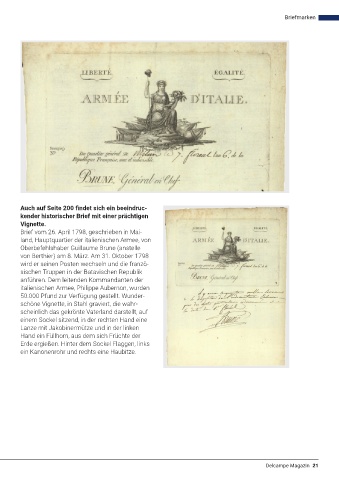 Briefmarken
LIBERTÉ. EGALITÉ.
ARMÉE D'ITALIE.
Au quartier général de 7. floréal l'an 6. de la
République Française, une et indivisible.
BRUNE, Général en Chef
Auch auf Seite 200 findet sich ein beeindruc-
kender historischer Brief mit einer prächtigen
Vignette.
Brief vom 26. April 1798, geschrieben in Mai-
land, Hauptquartier der Italienischen Armee, von
Oberbefehlshaber Guillaume Brune (anstelle
von Berthier) am 8. März. Am 31. Oktober 1798
wird er seinen Posten wechseln und die franzö-
sischen Truppen in der Batavischen Republik
anführen. Dem leitenden Kommandanten der
Italienischen Armee, Philippe Aubernon, wurden
50.000 Pfund zur Verfügung gestellt. Wunder-
schöne Vignette, in Stahl graviert, die wahr-
scheinlich das gekrönte Vaterland darstellt, auf
einem Sockel sitzend, in der rechten Hand eine
Lanze mit Jakobinermütze und in der linken
Hand ein Füllhorn, aus dem sich Früchte der
Erde ergießen. Hinter dem Sockel Flaggen, links
ein Kanonenrohr und rechts eine Haubitze.
ARMÉE D'ITALIE.
Delcampe Magazin 21